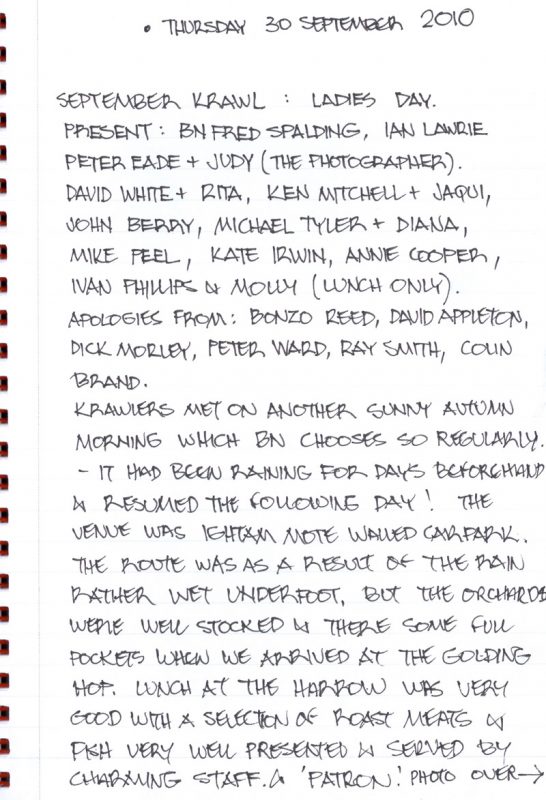 • THURSDAY 30 SEPTEMBER 2010
SEPTEMBER KRAWL : LADIES DAY.
PRESENT : BN FRED SPALDING, IAN LAWRIE
PETER EADE + JUDY (THE PHOTOGRAPHER).
DAVID WHITE + RITA, KEN MITCHELL + JAQUI,
JOHN BERRY, MICHAEL TYLER + DIANA,
MIKE PEEL, KATE IRWIN, ANNIE COOPER,
IVAN PHILLIPS & MOLLY (LUNCH ONLY).
APOLOGIES FROM: BONZO REED, DAVID APPLETON,
DICK MORLEY, PETER WARD, RAY SMITH, COLIN
BRAND.
KRAWLERS MET ON ANOTHER SUNNY AUTUMN
MORNING WHICH BN CHOOSES SO REGULARLY.
- IT HAD BEEN RAINING FOR DAYS BEFOREHAND
& RESUMED THE FOLLOWING DAY! THE
VENUE WAS IGHTAM MOTE WALLED CARPARK.
THE ROUTE WAS AS A RESULT OF THE RAIN
RATHER WET UNDERFOOT, BUT THE ORCHARDS
WERE WELL STOCKED & THERE SOME FULL
POCKETS WHEN WE ARRIVED AT THE GOLDING
HOP. LUNCH AT THE HARROW WAS VERY
GOOD WITH A SELECTION OF ROAST MEATS &
FISH VERY WELL PRESENTED & SERVED BY
CHARMING STAFF. & 'PATRON'. PHOTO OVER→